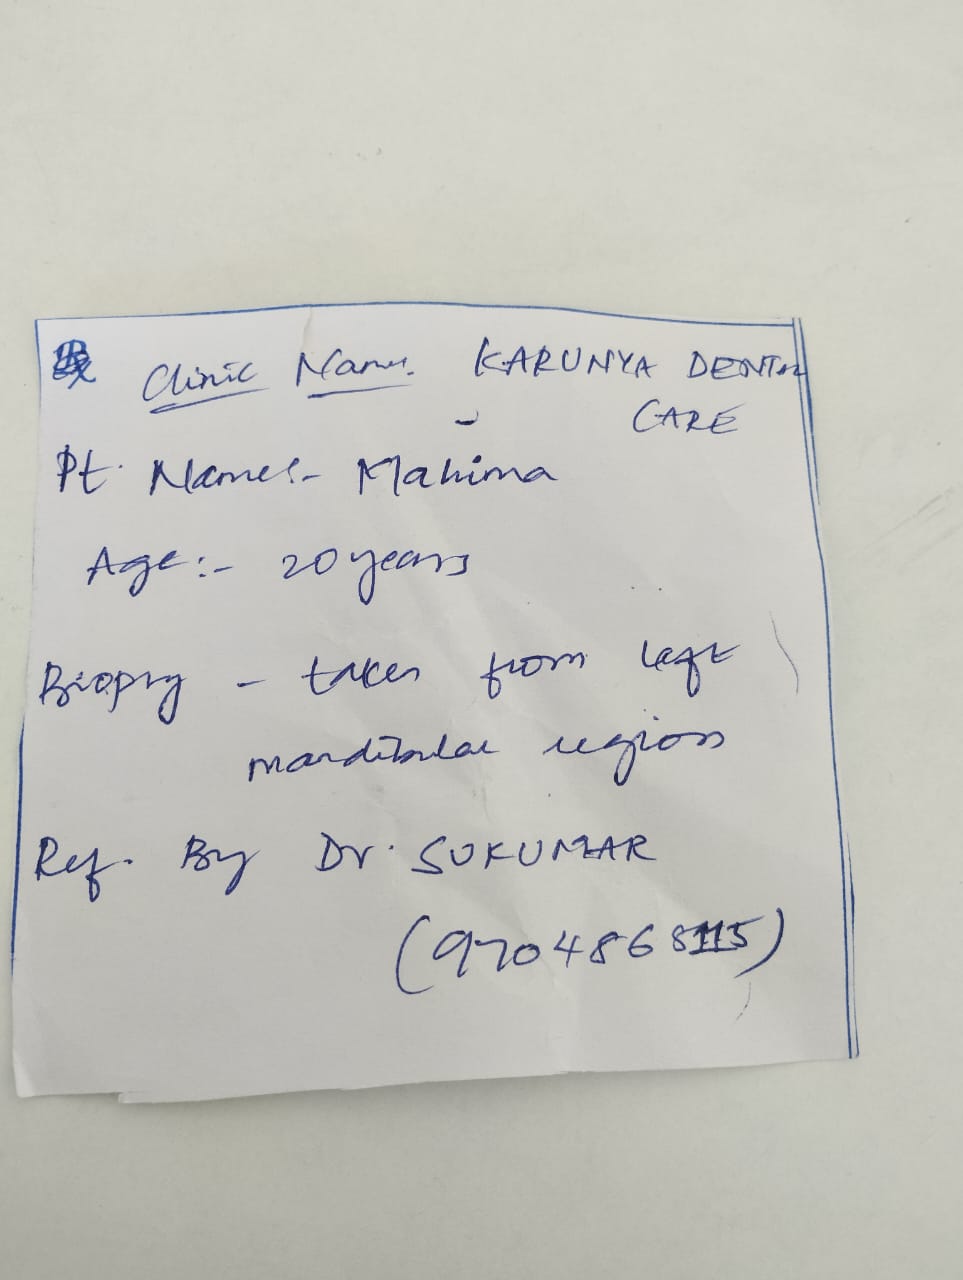 Clinic Name. KARUNYA DENTAL
CARE
Pt. Name:- Mahima
Age:- 20 years
Biopsy - taken from left
mandibular region
Ref. By Dr. SUKUMAR
(9704868115)